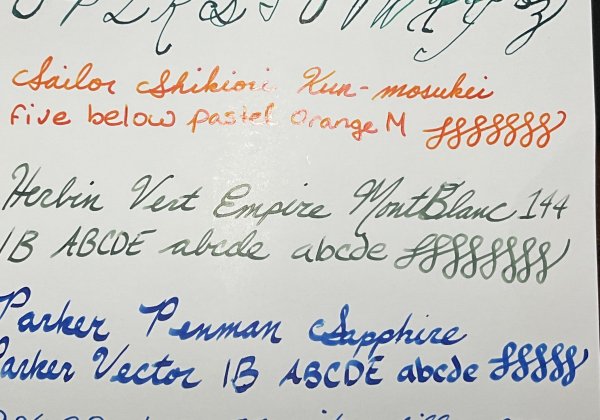 Sailor Shikiori Kin-mosukei
five below pastel orange M
Herbin Vert Empire MontBlanc 144
1B ABCDE abcde abcde
Parker Penman Sapphire
Parker Vector 1B ABCDE abcde